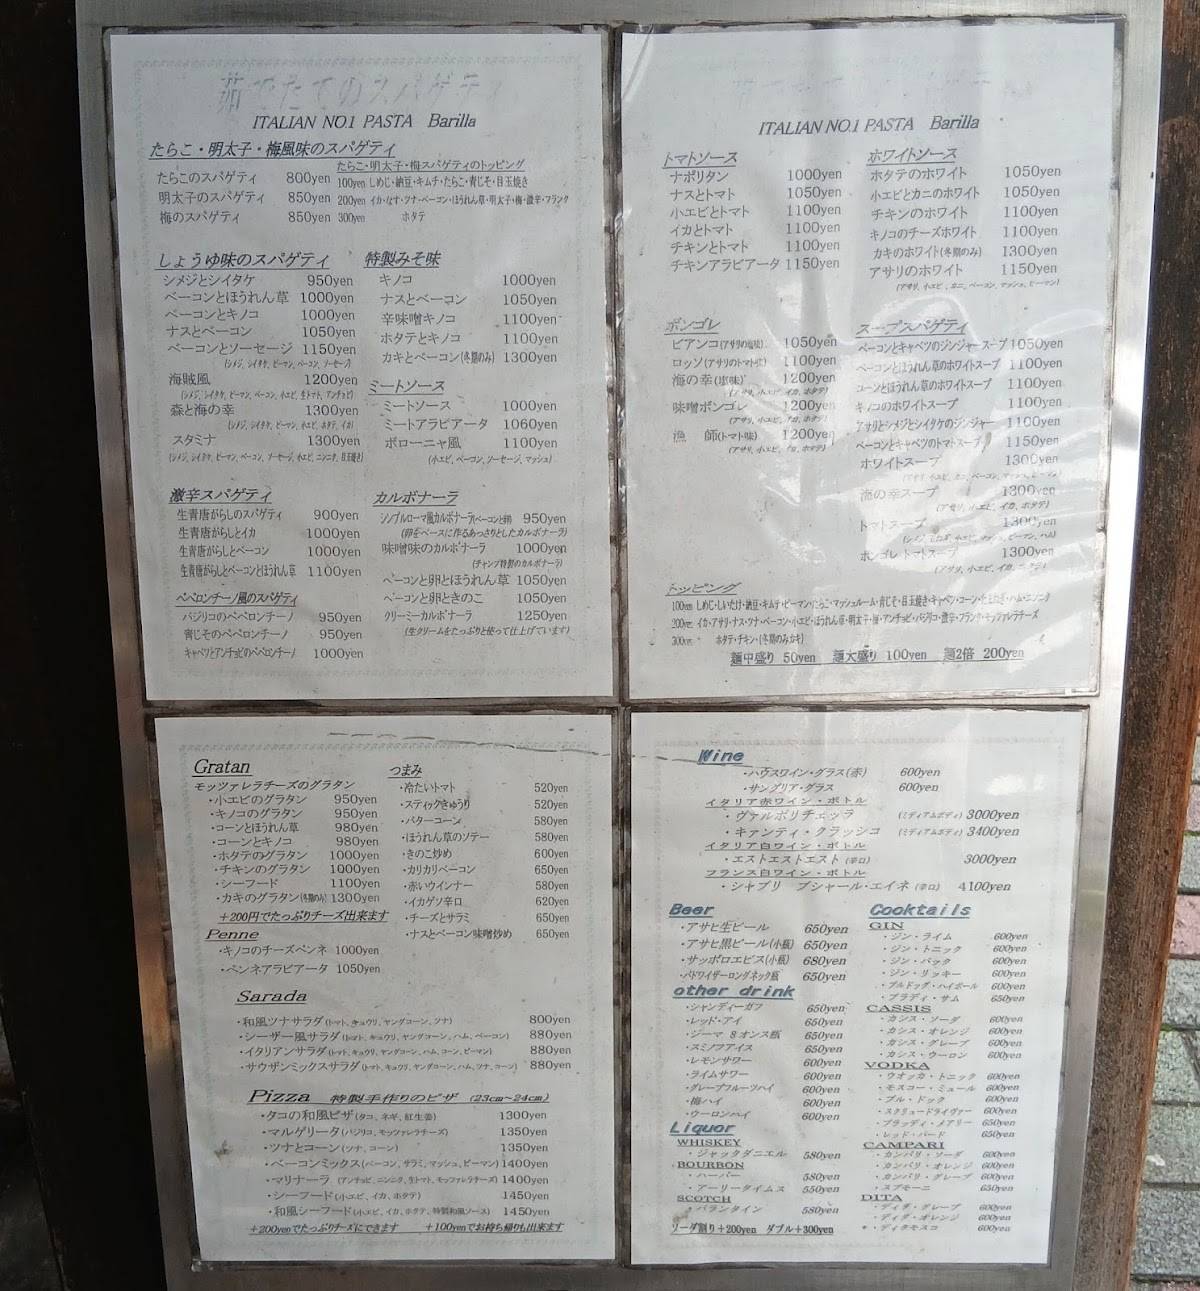 茹でたてのスパゲティ
ITALIAN NO.1 PASTA Barilla
たらこ・明太子・梅風味のスパゲティ
たらこのスパゲティ 800yen
明太子のスパゲティ 850yen
梅のスパゲティ 850yen
たらこ・明太子・梅スパゲティのトッピング
100yen しめじ・納豆・キムチ・たらこ・青じそ・目玉焼き
200yen イカ・なす・ツナ・ベーコン・ほうれん草・明太子・梅・激辛・フランク
300yen ホタテ
しょうゆ味のスパゲティ
シメジとシイタケ 950yen
ベーコンとほうれん草 1000yen
ベーコンとキノコ 1000yen
ナスとベーコン 1050yen
ベーコンとソーセージ 1150yen
(シメジ、シイタケ、ピーマン、ベーコン、ソーセージ)
海賊風 1200yen
(シメジ、シイタケ、ピーマン、ベーコン、小エビ、生トマト、アンチョビ)
森と海の幸 1300yen
(シメジ、シイタケ、ピーマン、小エビ、ホタテ、イカ)
スタミナ 1300yen
(シメジ、シイタケ、ピーマン、ベーコン、ソーセージ、小エビ、ニンニク、目玉焼き)
特製みそ味
キノコ 1000yen
ナスとベーコン 1050yen
辛味噌キノコ 1100yen
ホタテとキノコ 1100yen
カキとベーコン(冬期のみ) 1300yen
ミートソース
ミートソース 1000yen
ミートアラビアータ 1060yen
ボローニャ風 1100yen
(小エビ、ベーコン、ソーセージ、マッシュ)
激辛スパゲティ
生青唐がらしのスパゲティ 900yen
生青唐がらしとイカ 1000yen
生青唐がらしとベーコン 1000yen
生青唐がらしとベーコンとほうれん草 1100yen
ペペロンチーノ風のスパゲティ
バジリコのペペロンチーノ 950yen
青じそのペペロンチーノ 950yen
キャベツとアンチョビのペペロンチーノ 1000yen
カルボナーラ
シンプルローマ風カルボナーラ(ベーコンと卵) 950yen
(卵をベースに作るあっさりとしたカルボナーラ)
味噌味のカルボナーラ 1000yen
(チャンプ特製のカルボナーラ)
ベーコンと卵とほうれん草 1050yen
ベーコンと卵ときのこ 1050yen
クリーミーカルボナーラ 1250yen
(生クリームをたっぷりと使って仕上げています)
ITALIAN NO.1 PASTA Barilla
トマトソース
ナポリタン 1000yen
ナスとトマト 1050yen
小エビとトマト 1100yen
イカとトマト 1100yen
チキンとトマト 1100yen
チキンアラビアータ 1150yen
ホワイトソース
ホタテのホワイト 1050yen
小エビとカニのホワイト 1050yen
チキンのホワイト 1100yen
キノコのチーズホワイト 1100yen
カキのホワイト(冬期のみ) 1300yen
アサリのホワイト 1150yen
(アサリ、小エビ、カニ、ベーコン、マッシュ、ピーマン)
ボンゴレ
ビアンコ(アサリの塩味) 1050yen
ロッソ(アサリのトマト味) 1100yen
海の幸(塩味) 1200yen
(アサリ、小エビ、イカ、ホタテ)
味噌ボンゴレ 1200yen
(アサリ、小エビ、イカ、ホタテ)
漁 師(トマト味) 1200yen
(アサリ、小エビ、イカ、ホタテ)
スープスパゲティ
ベーコンとキャベツのジンジャースープ 1050yen
ベーコンとほうれん草のホワイトスープ 1100yen
コーンとほうれん草のホワイトスープ 1100yen
キノコのホワイトスープ 1100yen
アサリとシメジとシイタケのジンジャー 1100yen
ベーコンとキャベツのトマトスープ 1150yen
ホワイトスープ 1300yen
海の幸スープ 1300yen
(アサリ、小エビ、イカ、ホタテ)
トマトスープ 1300yen
ボンゴレトマトスープ 1300yen
(アサリ、小エビ、イカ、ホタテ)
トッピング
100yen しめじ・しいたけ・納豆・キムチ・ピーマン・たらこ・マッシュルーム・青じそ・目玉焼き・キャベツ・コーン・生玉ねぎ・ハム・ニンニク
200yen イカ・アサリ・ナス・ツナ・ベーコン・小エビ・ほうれん草・明太子・梅・アンチョビ・バジリコ・激辛・フランク・モッツァレラチーズ
300yen ホタテ・チキン・(冬期のみカキ)
麺中盛り 50yen 麺大盛り 100yen 麺2倍 200yen
Gratan
モッツァレラチーズのグラタン
・小エビのグラタン 950yen
・キノコのグラタン 950yen
・コーンとほうれん草 980yen
・コーンとキノコ 980yen
・ホタテのグラタン 1000yen
・チキンのグラタン 1000yen
・シーフード 1100yen
・カキのグラタン(冬期のみ) 1300yen
+200円でたっぷりチーズ出来ます
Penne
・キノコのチーズペンネ 1000yen
・ペンネアラビアータ 1050yen
つまみ
・冷たいトマト 520yen
・スティックきゅうり 520yen
・バターコーン 580yen
・ほうれん草のソテー 580yen
・きのこ炒め 600yen
・カリカリベーコン 650yen
・赤いウインナー 580yen
・イカゲソ辛口 620yen
・チーズとサラミ 650yen
・ナスとベーコン味噌炒め 650yen
Sarada
・和風ツナサラダ(トマト、キュウリ、ヤングコーン、ツナ) 800yen
・シーザー風サラダ(トマト、キュウリ、ヤングコーン、ハム、ベーコン) 880yen
・イタリアンサラダ(トマト、キュウリ、ヤングコーン、ハム、コーン、ピーマン) 880yen
・サウザンミックスサラダ(トマト、キュウリ、ヤングコーン、ハム、ツナ、コーン) 880yen
Pizza 特製手作りのピザ (23cm~24cm)
・タコの和風ピザ(タコ、ネギ、紅生姜) 1300yen
・マルゲリータ(バジリコ、モッツァレラチーズ) 1350yen
・ツナとコーン(ツナ、コーン) 1350yen
・ベーコンミックス(ベーコン、サラミ、マッシュ、ピーマン) 1400yen
・マリナーラ(アンチョビ、ニンニク、生トマト、モッツァレラチーズ) 1400yen
・シーフード(小エビ、イカ、ホタテ) 1450yen
・和風シーフード(小エビ、イカ、ホタテ、特製和風ソース) 1450yen
+200yenでたっぷりチーズにできます +100yenでお持ち帰りも出来ます
Wine
・ハウスワイン・グラス(赤) 600yen
・サングリア・グラス 600yen
イタリア赤ワイン・ボトル
・ヴァルポリチェッラ (ミディアムボディ) 3000yen
・キァンティ・クラッシコ (ミディアムボディ) 3400yen
イタリア白ワイン・ボトル
・エストエストエスト(辛口) 3000yen
フランス白ワイン・ボトル
・シャブリ プシャール・エイネ(辛口) 4100yen
Beer
・アサヒ生ビール 650yen
・アサヒ黒ビール(小瓶) 650yen
・サッポロエビス(小瓶) 680yen
・バドワイザーロングネック瓶 650yen
other drink
・シャンディーガフ 650yen
・レッド・アイ 650yen
・ジーマ 8オンス瓶 650yen
・スミノフアイス 650yen
・レモンサワー 600yen
・ライムサワー 600yen
・グレープフルーツハイ 600yen
・梅ハイ 600yen
・ウーロンハイ 600yen
Liquor
WHISKEY
・ジャックダニエル 580yen
BOURBON
・ハーパー 580yen
・アーリータイムス 550yen
SCOTCH
・バランタイン 580yen
ソーダ割り+200yen ダブル+300yen
Cooktails
GIN
・ジン・ライム 600yen
・ジン・トニック 600yen
・ジン・バック 600yen
・ジン・リッキー 600yen
・ブルドッグ・ハイボール 600yen
・ブラディ・サム 650yen
CASSIS
・カシス・ソーダ 600yen
・カシス・オレンジ 600yen
・カシス・グレープ 600yen
・カシス・ウーロン 600yen
VODKA
・ウオッカ・トニック 600yen
・モスコー・ミュール 600yen
・ブル・ドック 600yen
・スクリュードライヴァー 600yen
・ブラッディ・メアリー 650yen
・レッド・バード 650yen
CAMPARI
・カンパリ・ソーダ 600yen
・カンパリ・オレンジ 600yen
・カンパリ・グレープ 600yen
・スプモーニ 650yen
DITA
・ディタ・グレープ 600yen
・ディタ・オレンジ 600yen
・ディタモスコ 600yen